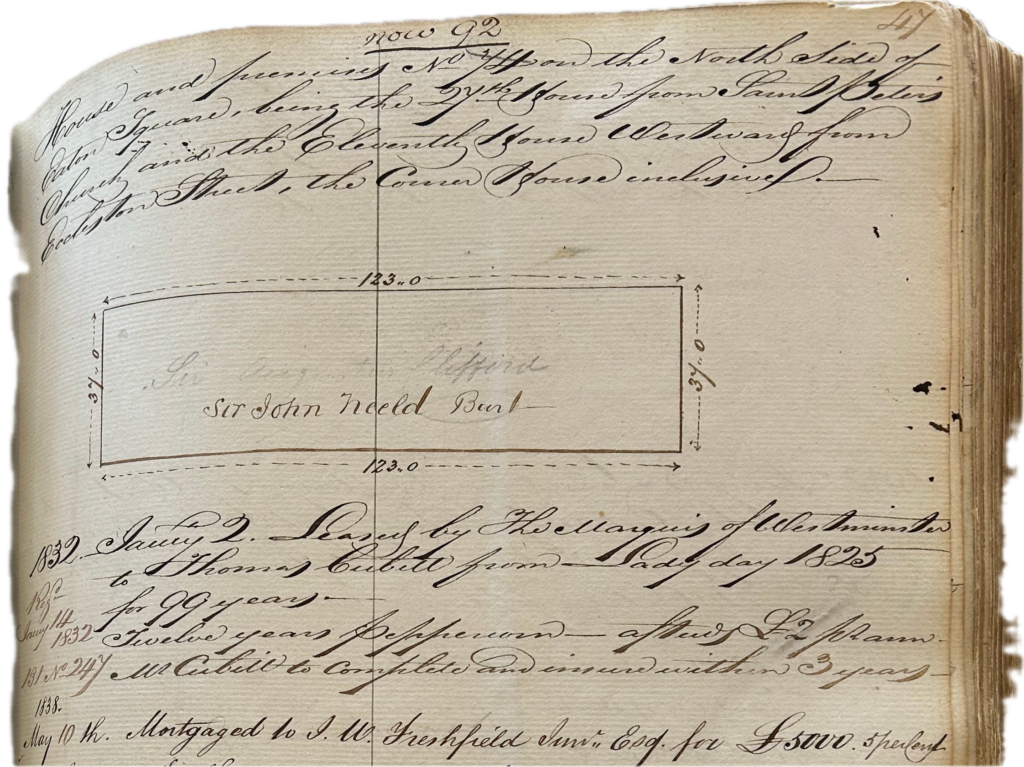 47
now 92
House and premises No. 74 on the North Side of
Eaton Square, being the 27th House from Saint Peter's
Church, and the Eleventh House Westward from
Eccleston Street, the Corner House inclusive.—
123.,0
37.,0
37.,0
Sir Augustus Clifford
Sir John Neeld Bart
123.,0
1832. Jany 2. Leased by The Marquis of Westminster
to Thomas Cubitt from — Lady day 1825
for 99 years —
Regd
Jany 14
1832 Twelve years Peppercorn — afterwds £2 pr Ann.
131 No 247 Mr Cubitt to complete and insure within 3 years —
1838.
May 10 th. Mortgaged to J. W. Freshfield Junr. Esq. for £5000. 5 per Cent